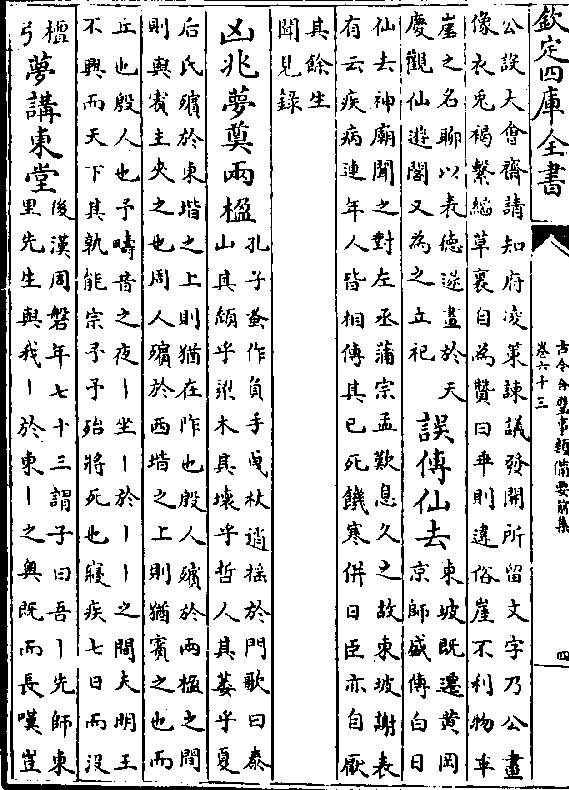 欽定四庫全書
古今合璧事類備要前集
卷六十三
四
公設大會齋請知府凌策諫議發開所留文字乃公畫
像衣兎褐繫縚草裹自為贊曰乖則違俗崖不利物乖
崖之名聊以表德遂畫於天
慶觀仙遊閣又為之立祀
誤傳仙去
東坡既遷黄岡
京師盛傳白日
仙去神廟聞之對左丞蒲宗孟歎息久之故東坡謝表
有云疾病連年人皆相傳其已死饑寒併日臣亦自厭
其餘生
聞見錄
凶兆夢奠兩楹
孔子蚤作負手曳杖逍摇於門歌曰泰
山其頽乎梁木其壞乎哲人其萎乎夏
后氏殯於東堦之上則猶在阼也殷人殯於兩楹之間
則與賓主夾之也周人殯於西堦之上則猶賓之也而
丘也殷人也予疇昔之夜丨坐丨於丨丨之間夫明王
不興而天下其孰能宗予予殆將死也寢疾七日而沒
檀
弓
夢講東堂
後漢周磐年七十三謂子曰吾丨先師東
里先生與我丨於東丨之奥既而長嘆豈